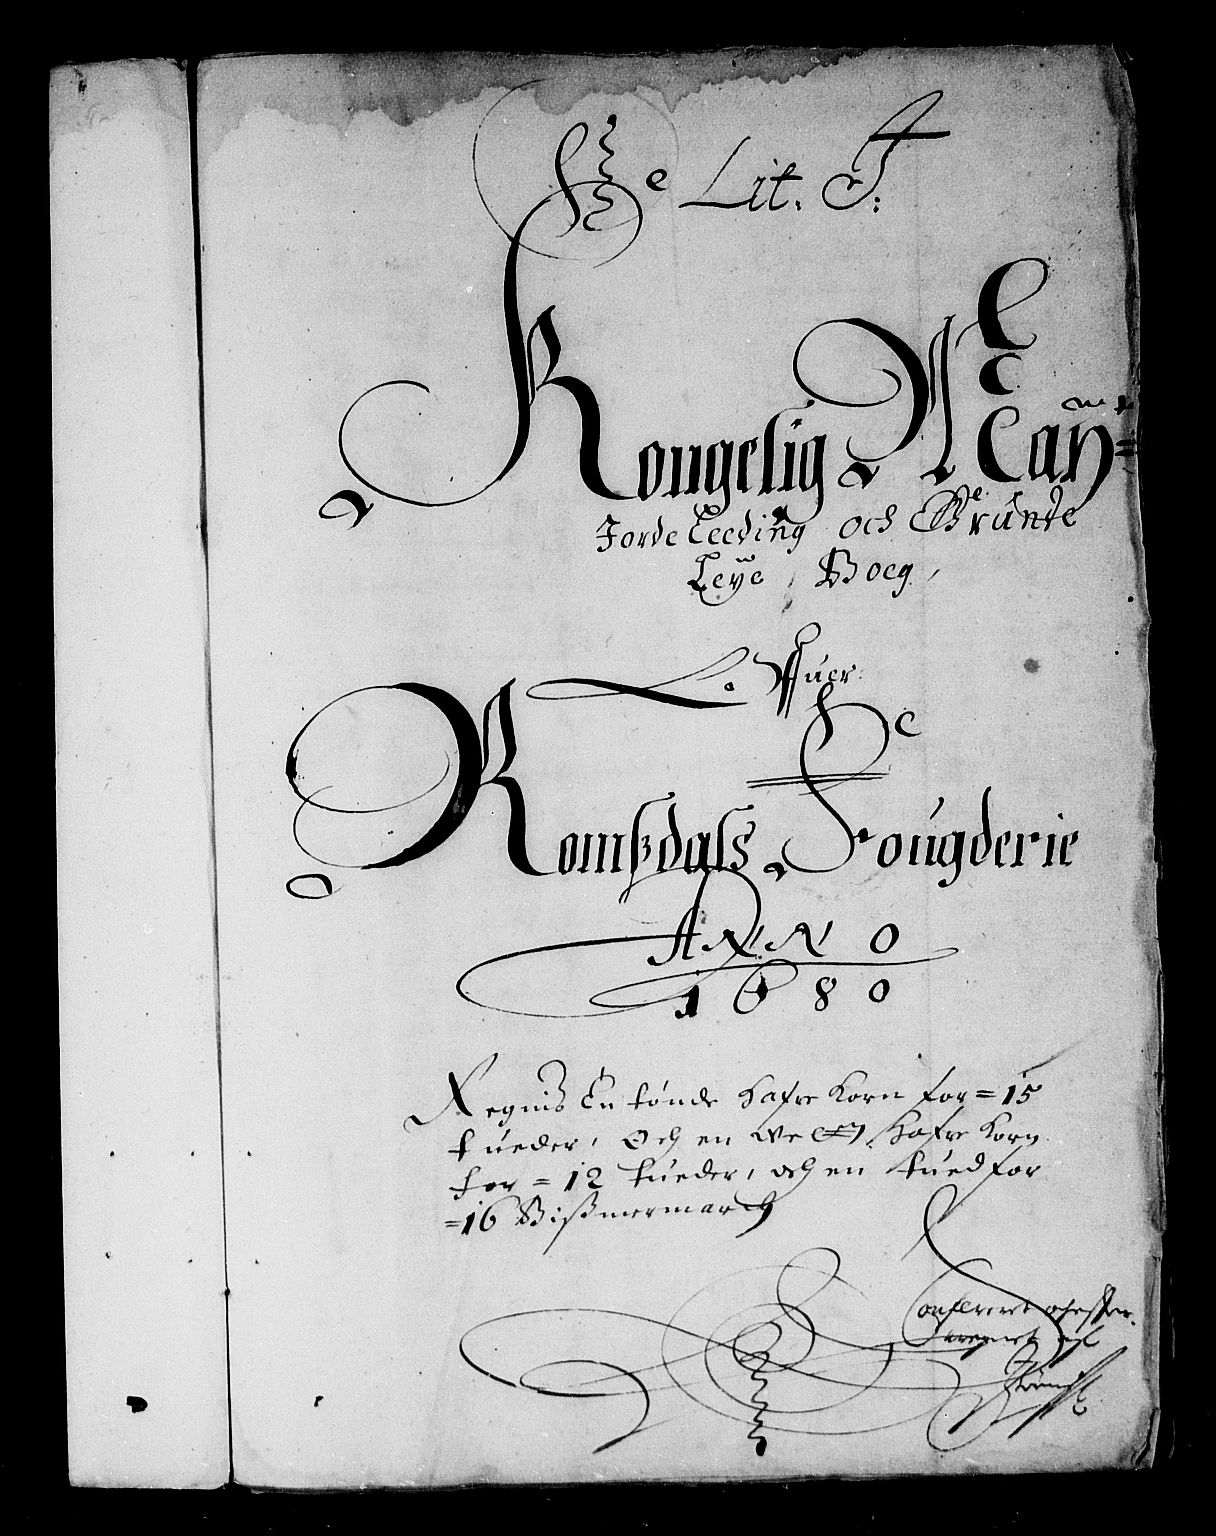 Lit. J:
Kongelig May:
Jorde Leeding och Grunde
Leÿe Boeg,
Offuer
Romßdals Fougderie
ANNO
1680
Regnis En tønde Hafre Korn for = 15
tueder, Och en We Hafre Korn
for = 12 tueder, och en tued for
=16 Bißmermarch
Confereret